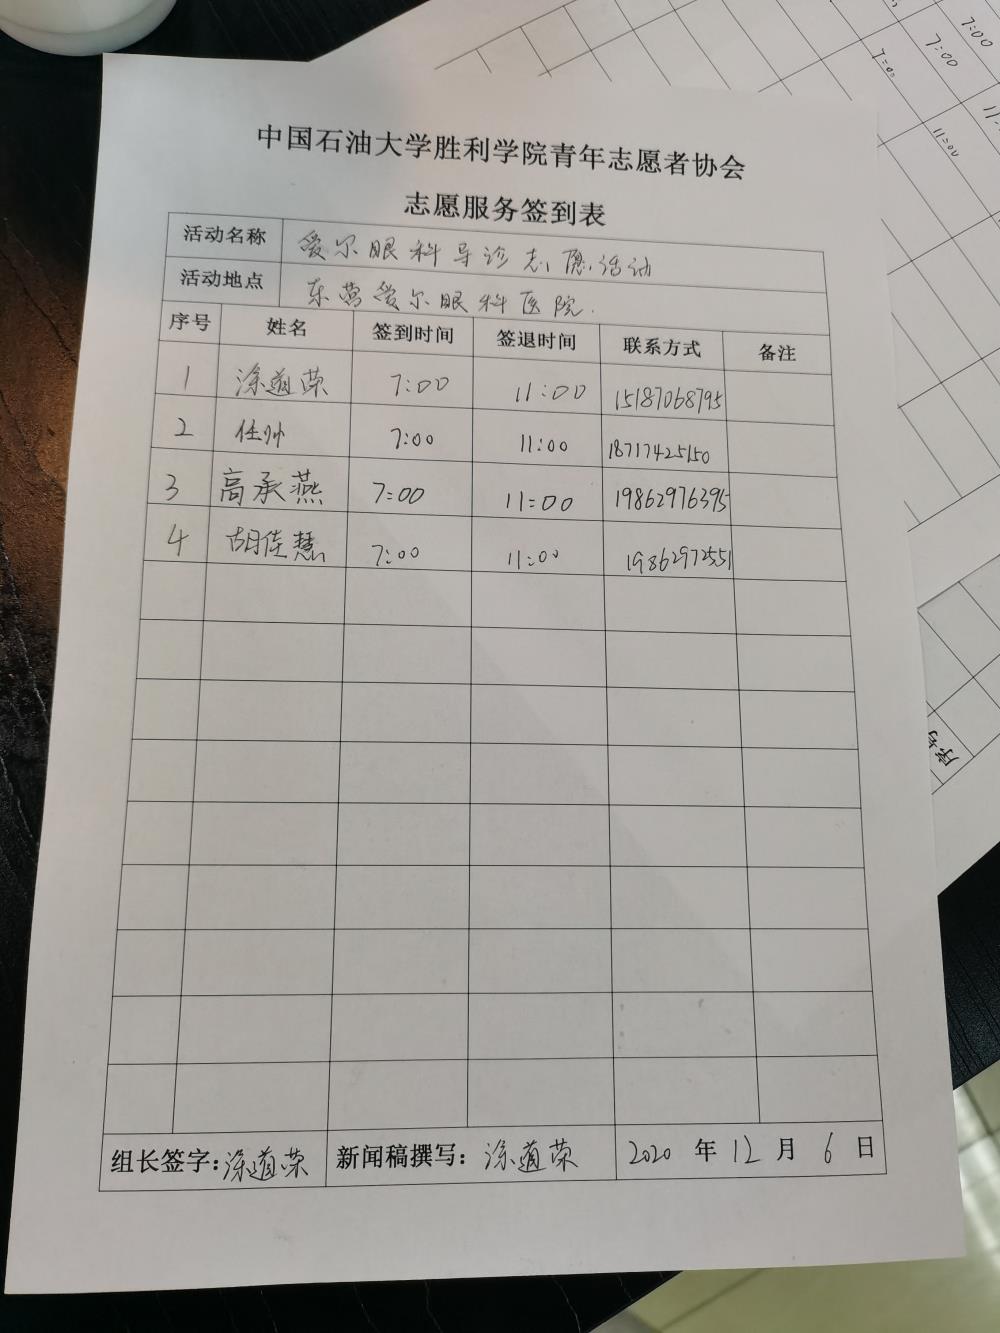 中国石油大学胜利学院青年志愿者协会
志愿服务签到表
活动名称 爱尔眼科导诊志愿活动
活动地点 东营爱尔眼科医院.
序号 姓名 签到时间 签退时间 联系方式 备注
1 涂道荣 7:00 11:00 15187068795
2 任帅 7:00 11:00 18717425150
3 高承燕 7:00 11:00 19862976395
4 胡佳慧 7:00 11:00 19862972551
组长签字:涂道荣 新闻稿撰写:涂道荣 2020 年 12 月 6 日
7:00
7:00
7:00
11:00
序号